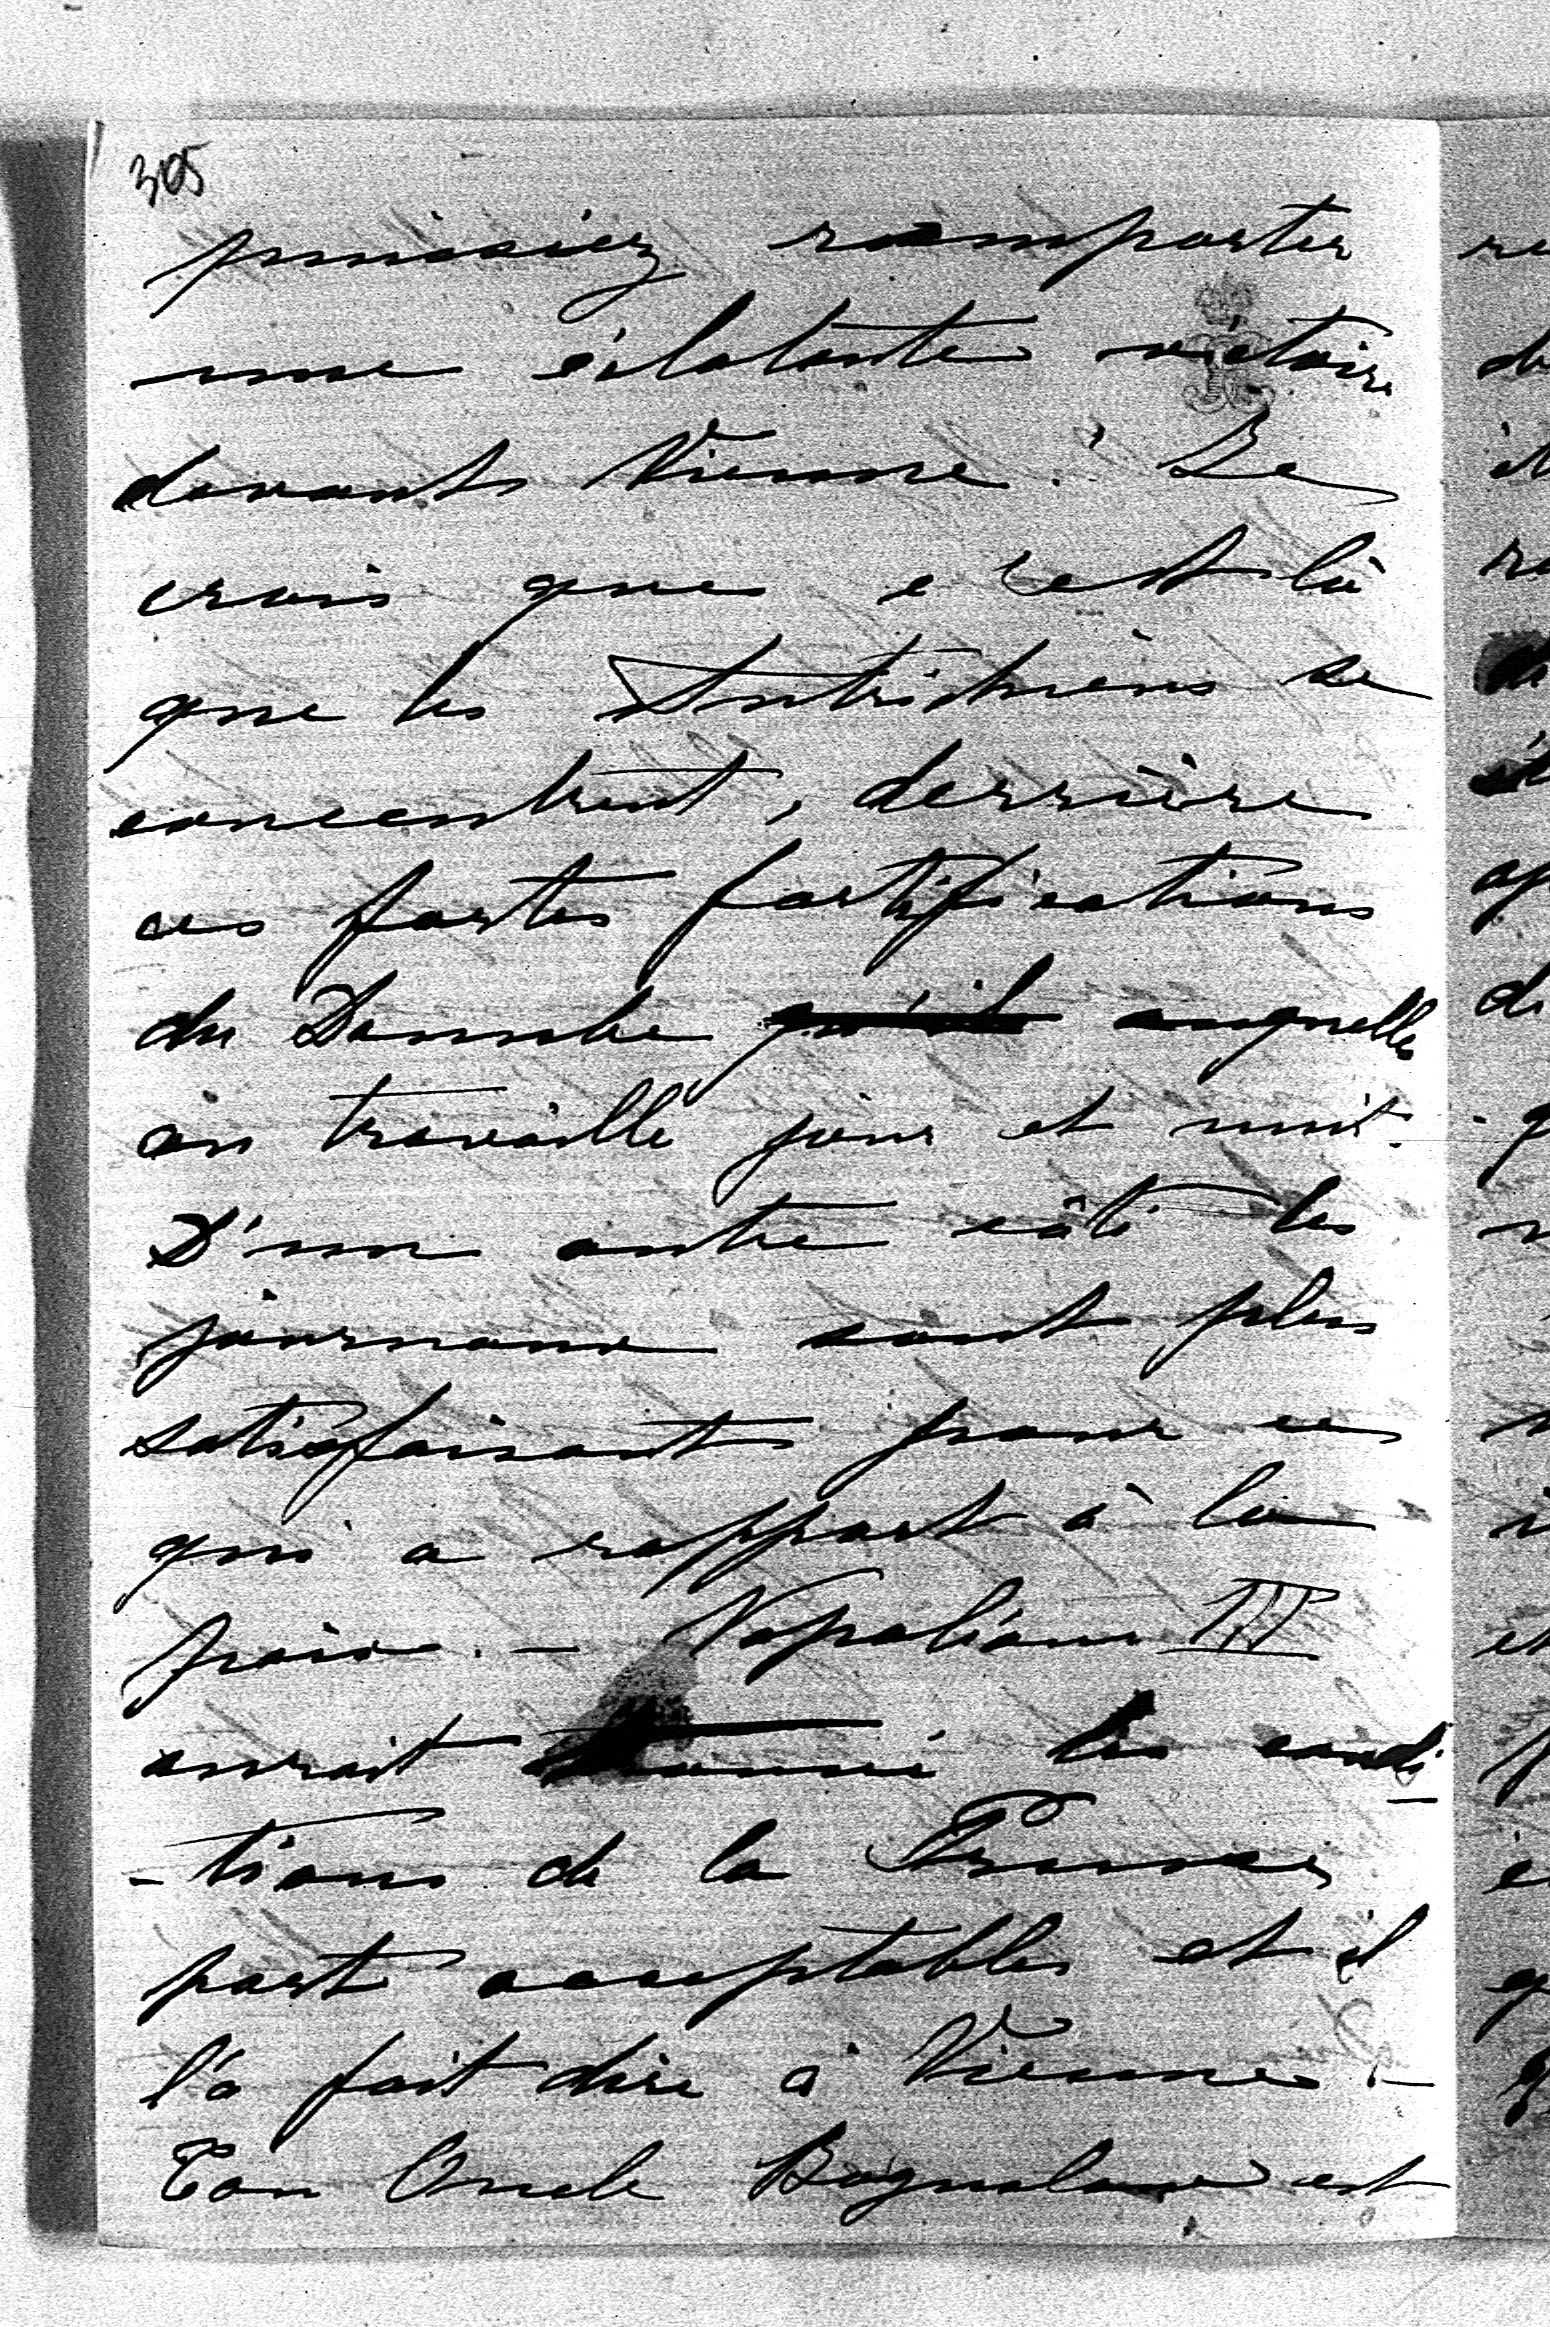 305
puissiez remporter
une éclatante victoire
devant Vienne. Je
crois que c'est là
que les Autrichiens se
concentrent, derrière
ces fortes fortifications
du Danube qu'il auquelles
on travaille jour et nuit.
D'un autre côté les
journaux sont plus
satisfaisants pour ce
qui a rapport à la
paix. — Napoléon III
aurait trouvé les condi
-tions de la Prusse
part acceptables et il
l'a fait dire à Vienne. —
Ton Oncle Boguslaw est